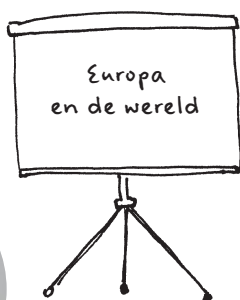 Europa
en de wereld